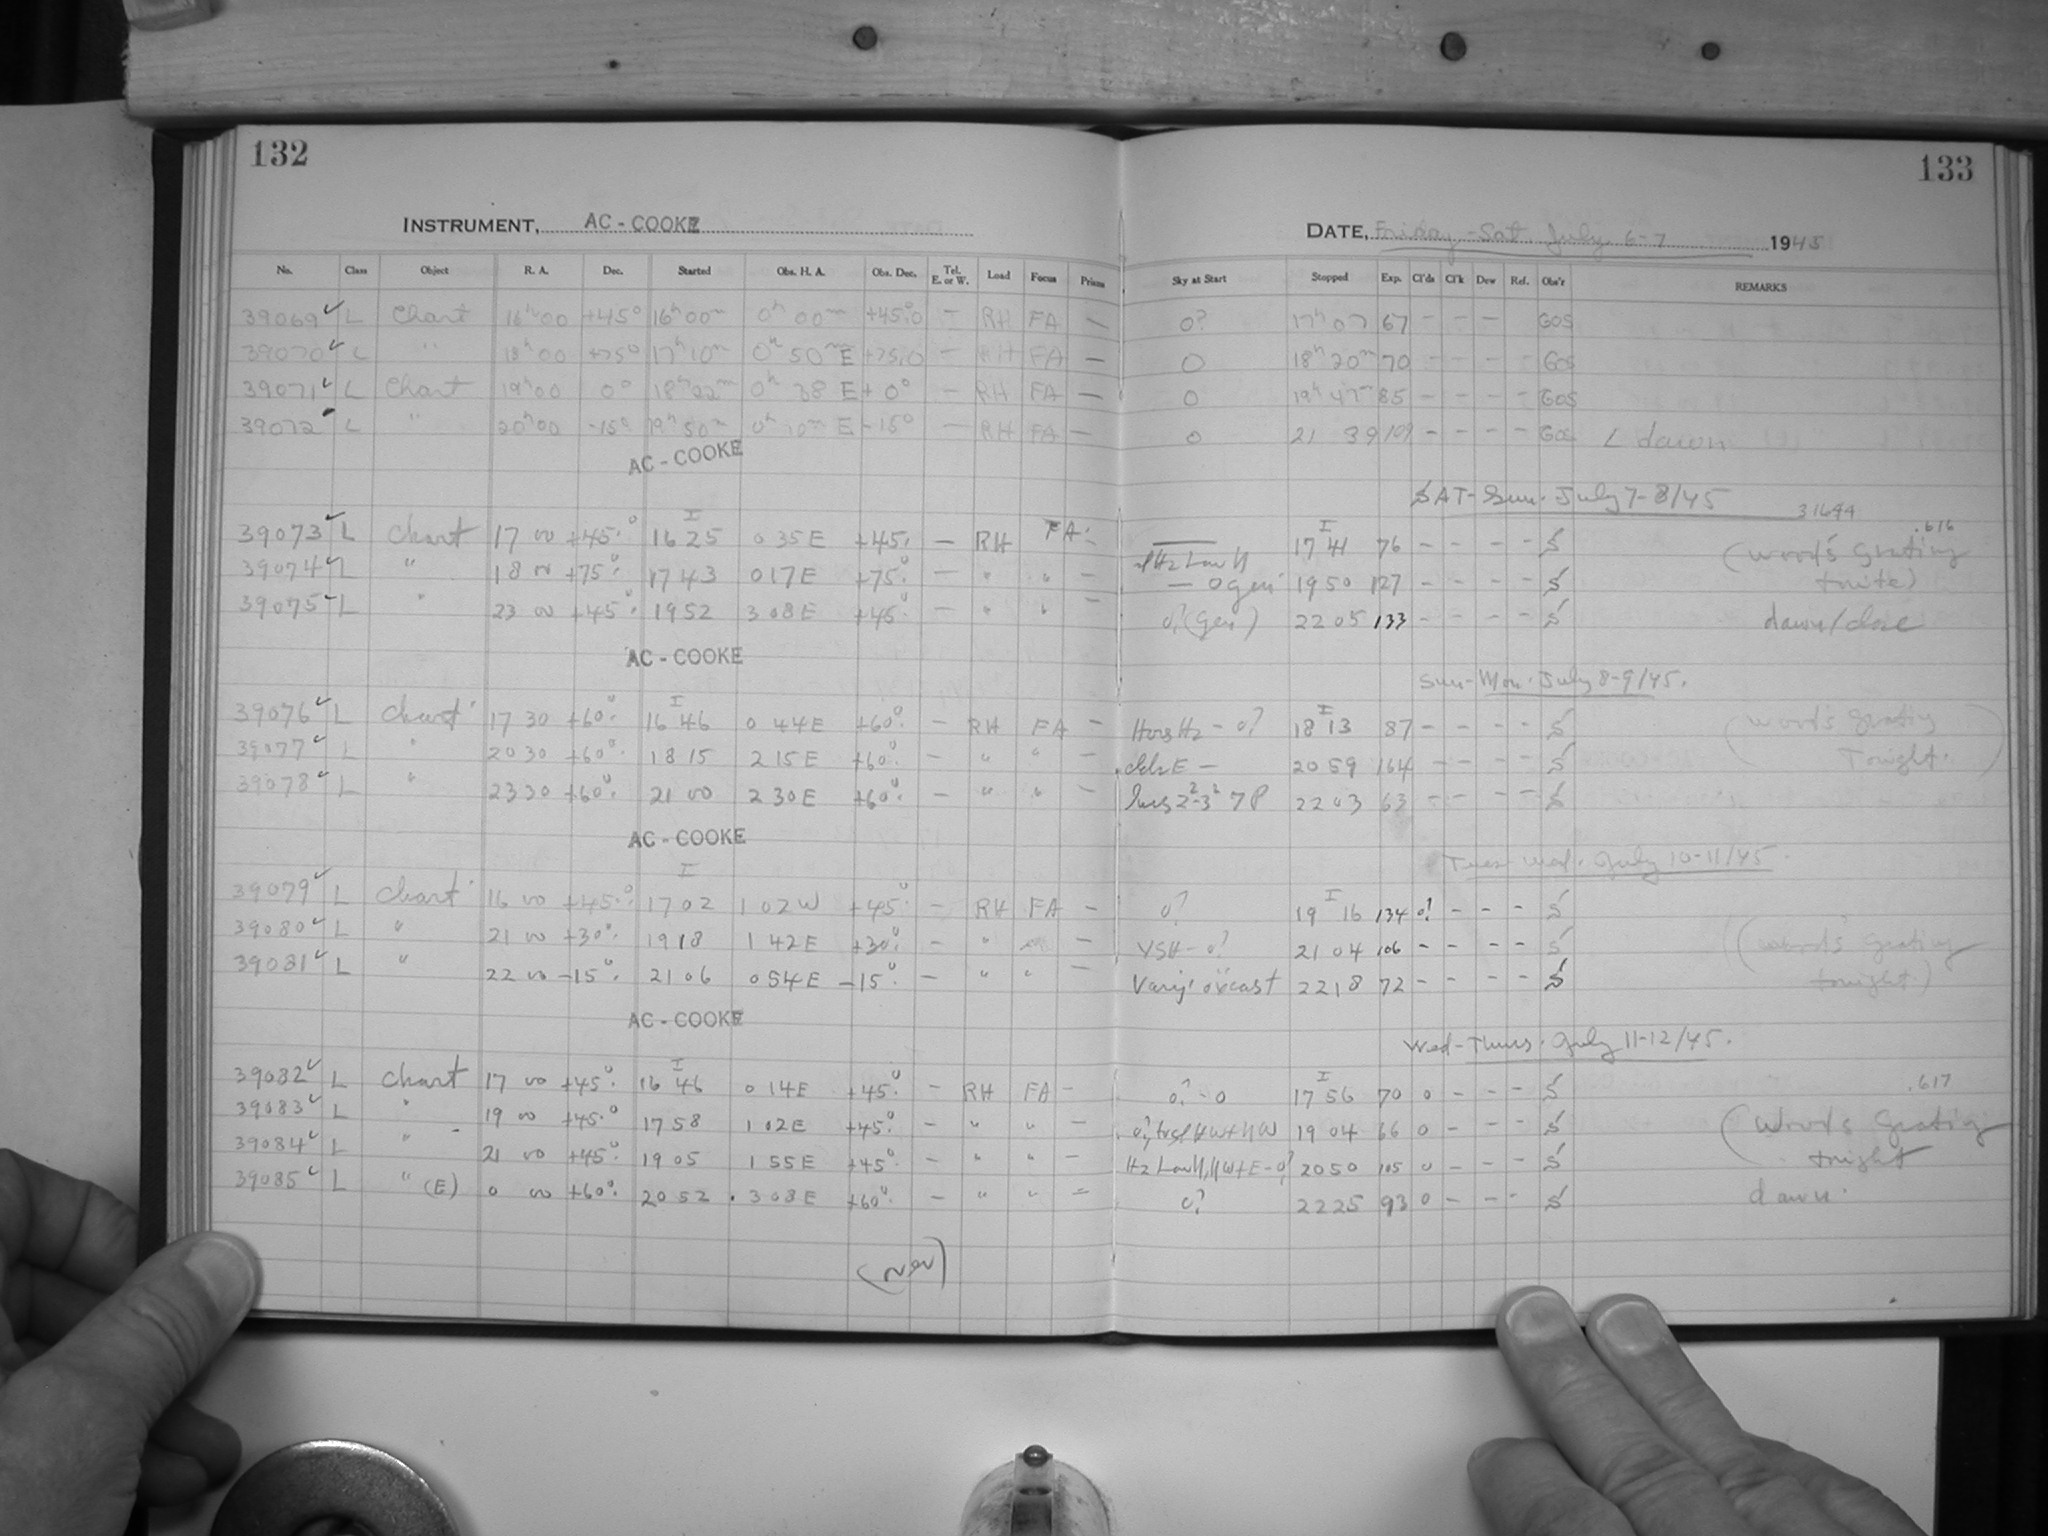 132
133
INSTRUMENT, AC-COOKE
DATE, Friday-Sat July 6-7 1945
No. Class Object R. A. Dec. Started Obs. H. A. Obs. Dec. Tel. E. or W. Load Focus Prisms Sky at Start Stopped Exp. Cl'ds Cl'k Dew Ref. Obs'r REMARKS
39069 ✓ L Chart 16h 00 +45° 16h 00m 0h 00m +45.0 — RH FA — 0? 17h 07 67 - - — GOS
39070 ✓ L " 18h 00 +75° 17h 10m 0h 50m E +75.0 — RH FA — 0 18h 20m 70 - - - GOS
39071 ✓ L Chart 19h 00 0° 18h 22m 0h 38 E + 0° — RH FA — 0 19h 47m 85 - - - - GOS
39072 L " 20h 00 -15° 19h 50m 0h 10m E -15° — RH FA — 0 21 39 109 - - - - GOS L dawn
AC-COOKE
SAT-Sun. July 7-8/45
31644 .616
39073 ✓ L Chart 17 00 +45.° I 16 25 0 35 E +45. — RH FA. - I 17 41 76 - - - - S (Wood's Grating
39074 ✓ L " 18 00 +75.° 17 43 0 17 E +75.° — " " - — 0 gen 19 50 127 - - - - S tonite)
39075 ✓ L " 23 00 +45.° 19 52 3 08 E +45.° — " " - 0? (gen) 22 05 133 - - - - S dawn/close
AC-COOKE
Sun-Mon. July 8-9/45.
39076 ✓ L Chart 17 30 +60.° I 16 46 0 44 E +60.° - RH FA - Hzs Hz - 0? I 18 13 87 - - - - S (Wood's Grating
39077 ✓ L " 20 30 +60.° 18 15 2 15 E +60.° - " " - E — 20 59 164 - - - - S Tonight.)
39078 ✓ L " 23 30 +60.° 21 00 2 30 E +60.° - " " - 22 03 63 - - - - S
AC-COOKE
Tues-Wed. July 10-11/45.
39079 ✓ L Chart 16 00 +45.° I 17 02 1 02 W +45.° - RH FA - 0? I 19 16 134 0? - - - S
39080 ✓ L " 21 00 +30.° 19 18 1 42 E +30.° - " - VSH-0? 21 04 106 - - - - S (Wood's Grating
39081 ✓ L " 22 00 -15.° 21 06 0 54 E -15.° - " " - 22 18 72 - - - - S tonight.)
AC-COOKE
Wed-Thurs. July 11-12/45.
.617
39082 ✓ L Chart 17 00 +45.° I 16 46 0 14 E +45.° - RH FA - 0? - 0 I 17 56 70 0 - - - S
39083 ✓ L " 19 00 +45.° 17 58 1 02 E +45.° - " " - 19 04 66 0 - - - S (Wood's Grating
39084 ✓ L " 21 00 +45.° 19 05 1 55 E +45.° - " " - 20 50 105 0 - - - S tonight
39085 ✓ L " (E) 0 00 +60.° 20 52 . 3 08 E +60.° - " " - 0? 22 25 93 0 - - - S dawn.